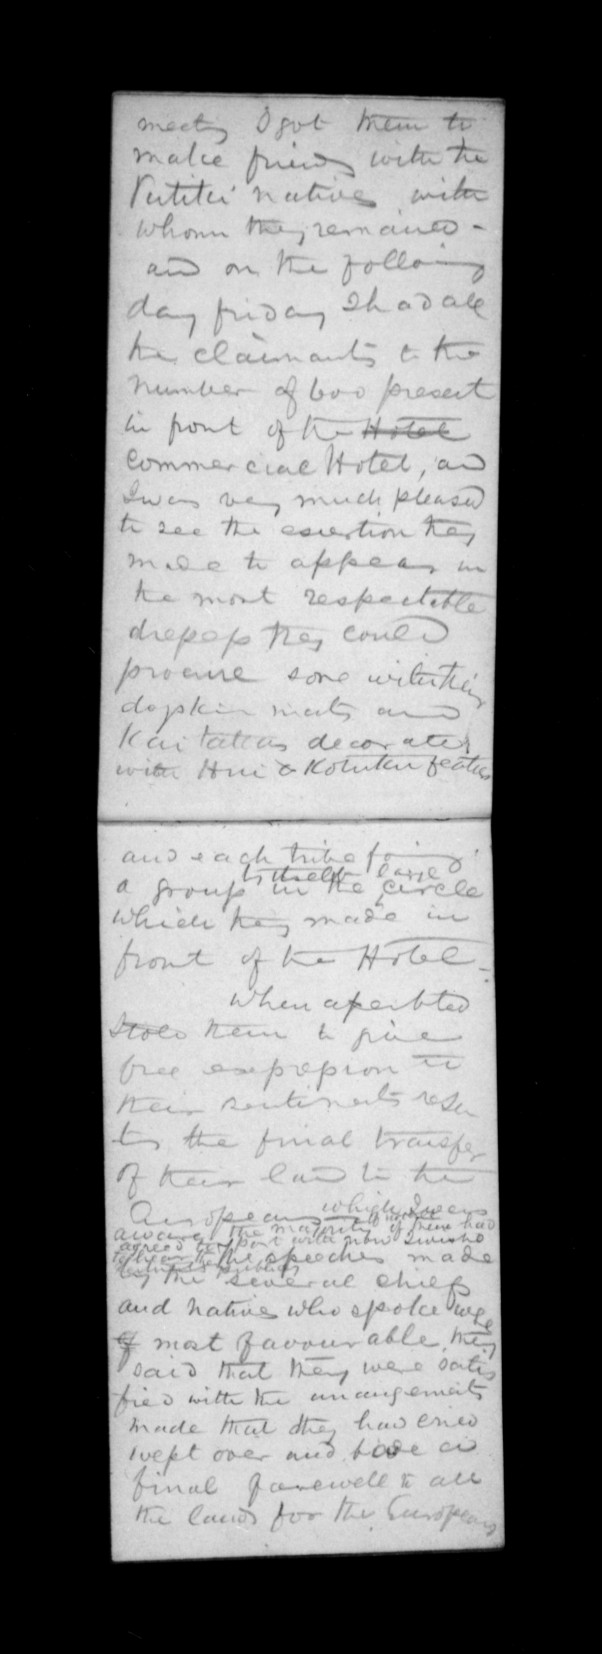 meeting I got them to
make friends with the
Putiki natives with
whom they remained -
and on the following
day friday I had all
the claimants to the
number of 600 present
in front of the Hotel
Commercial Hotel, and
I was very much pleased
to see the exertion they
made to appear in
the most respectable
dresses they could
procure some with their
dogskin mats and
Kaitakas decorated
with Hui & Kotuku feathers
and each tribe forming
to itself large
a group in the circle
which they made in
front of the Hotel -
When assembled
I told them to give
free expression to
their sentiments
the final transfer
of their land to the
Europeans which I was
aware the majority of them had
agreed to part with
the speeches made
by the several chiefs
and natives who spoke were
of most favourable, they
said that they were satis
fied with the arrangements
made that they had cried
wept over and bade a
final farewell to all
the lands for the Europeans